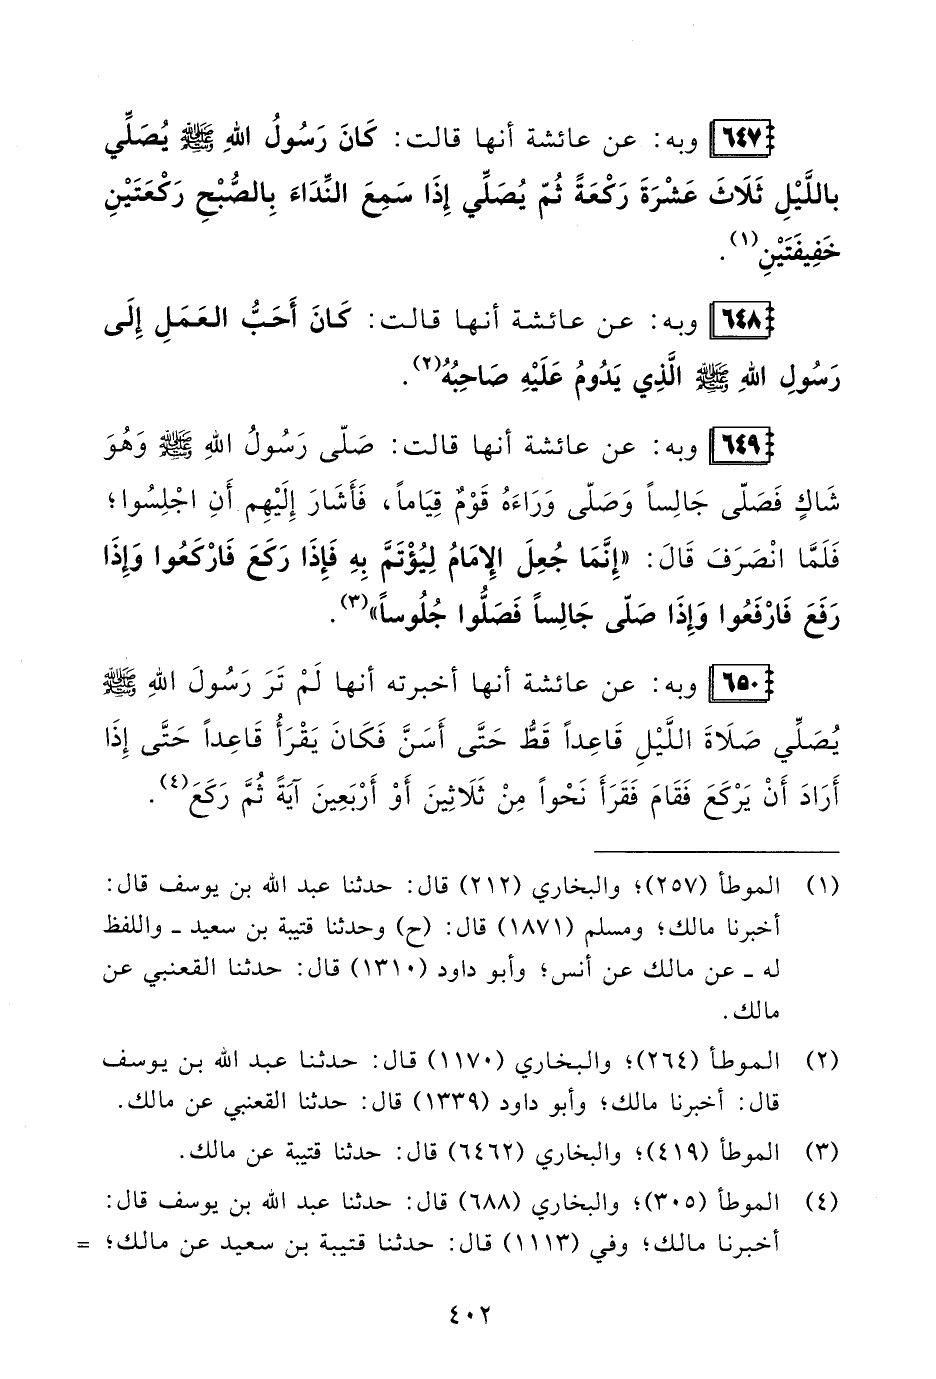 ٦٤٧ وبه: عن عائشة أنها قالت: كَانَ رَسُولُ اللهِ ﷺ يُصَلِّي
باللَّيْلِ ثَلَاثَ عَشْرَةَ رَكْعَةً ثُمّ يُصَلِّي إِذَا سَمِعَ النِّدَاءَ بِالصُّبْحِ رَكْعَتَيْنِ
خَفِيفَتَيْنِ(١).
٦٤٨ وبه: عن عائشة أنها قالت: كَانَ أَحَبُّ العَمَلِ إِلَى
رَسُولِ اللهِ ﷺ الَّذِي يَدُومُ عَلَيْهِ صَاحِبُهُ(٢).
٦٤٩ وبه: عن عائشة أنها قالت: صَلّى رَسُولُ اللهِ ﷺ وَهُوَ
شَاكٍ فَصَلّى جَالِساً وَصَلّى وَرَاءَهُ قَوْمٌ قِيَاماً، فَأَشَارَ إِلَيْهِم أَنِ اجْلِسُوا؛
فَلَمَّا انْصَرَفَ قَالَ: «إِنَّمَا جُعِلَ الإمَامُ لِيُؤْتَمَّ بِهِ فَإِذَا رَكَعَ فَارْكَعُوا وَإِذَا
رَفَعَ فَارْفَعُوا وَإِذَا صَلّى جَالِساً فَصَلُّوا جُلُوساً»(٣).
٦٥٠ وبه: عن عائشة أنها أخبرته أنها لَمْ تَرَ رَسُولَ اللهِ ﷺ
يُصَلِّي صَلَاةَ اللَّيْلِ قَاعِداً قَطُّ حَتَّى أَسَنَّ فَكَانَ يَقْرَأُ قَاعِداً حَتَّى إِذَا
أَرَادَ أَنْ يَرْكَعَ فَقَامَ فَقَرَأَ نَحْواً مِنْ ثَلَاثِينَ أَوْ أَرْبَعِينَ آيَةً ثُمَّ رَكَعَ(٤).
(١) الموطأ (٢٥٧)؛ والبخاري (٢١٢) قال: حدثنا عبد الله بن يوسف قال:
أخبرنا مالك؛ ومسلم (١٨٧١) قال: (ح) وحدثنا قتيبة بن سعيد ـ واللفظ
له ـ عن مالك عن أنس؛ وأبو داود (١٣١٠) قال: حدثنا القعنبي عن
مالك.
(٢) الموطأ (٢٦٤)؛ والبخاري (١١٧٠) قال: حدثنا عبد الله بن يوسف
قال: أخبرنا مالك؛ وأبو داود (١٣٣٩) قال: حدثنا القعنبي عن مالك.
(٣) الموطأ (٤١٩)؛ والبخاري (٦٤٦٢) قال: حدثنا قتيبة عن مالك.
(٤) الموطأ (٣٠٥)؛ والبخاري (٦٨٨) قال: حدثنا عبد الله بن يوسف قال:
أخبرنا مالك؛ وفي (١١١٣) قال: حدثنا قتيبة بن سعيد عن مالك؛ =
٤٠٢